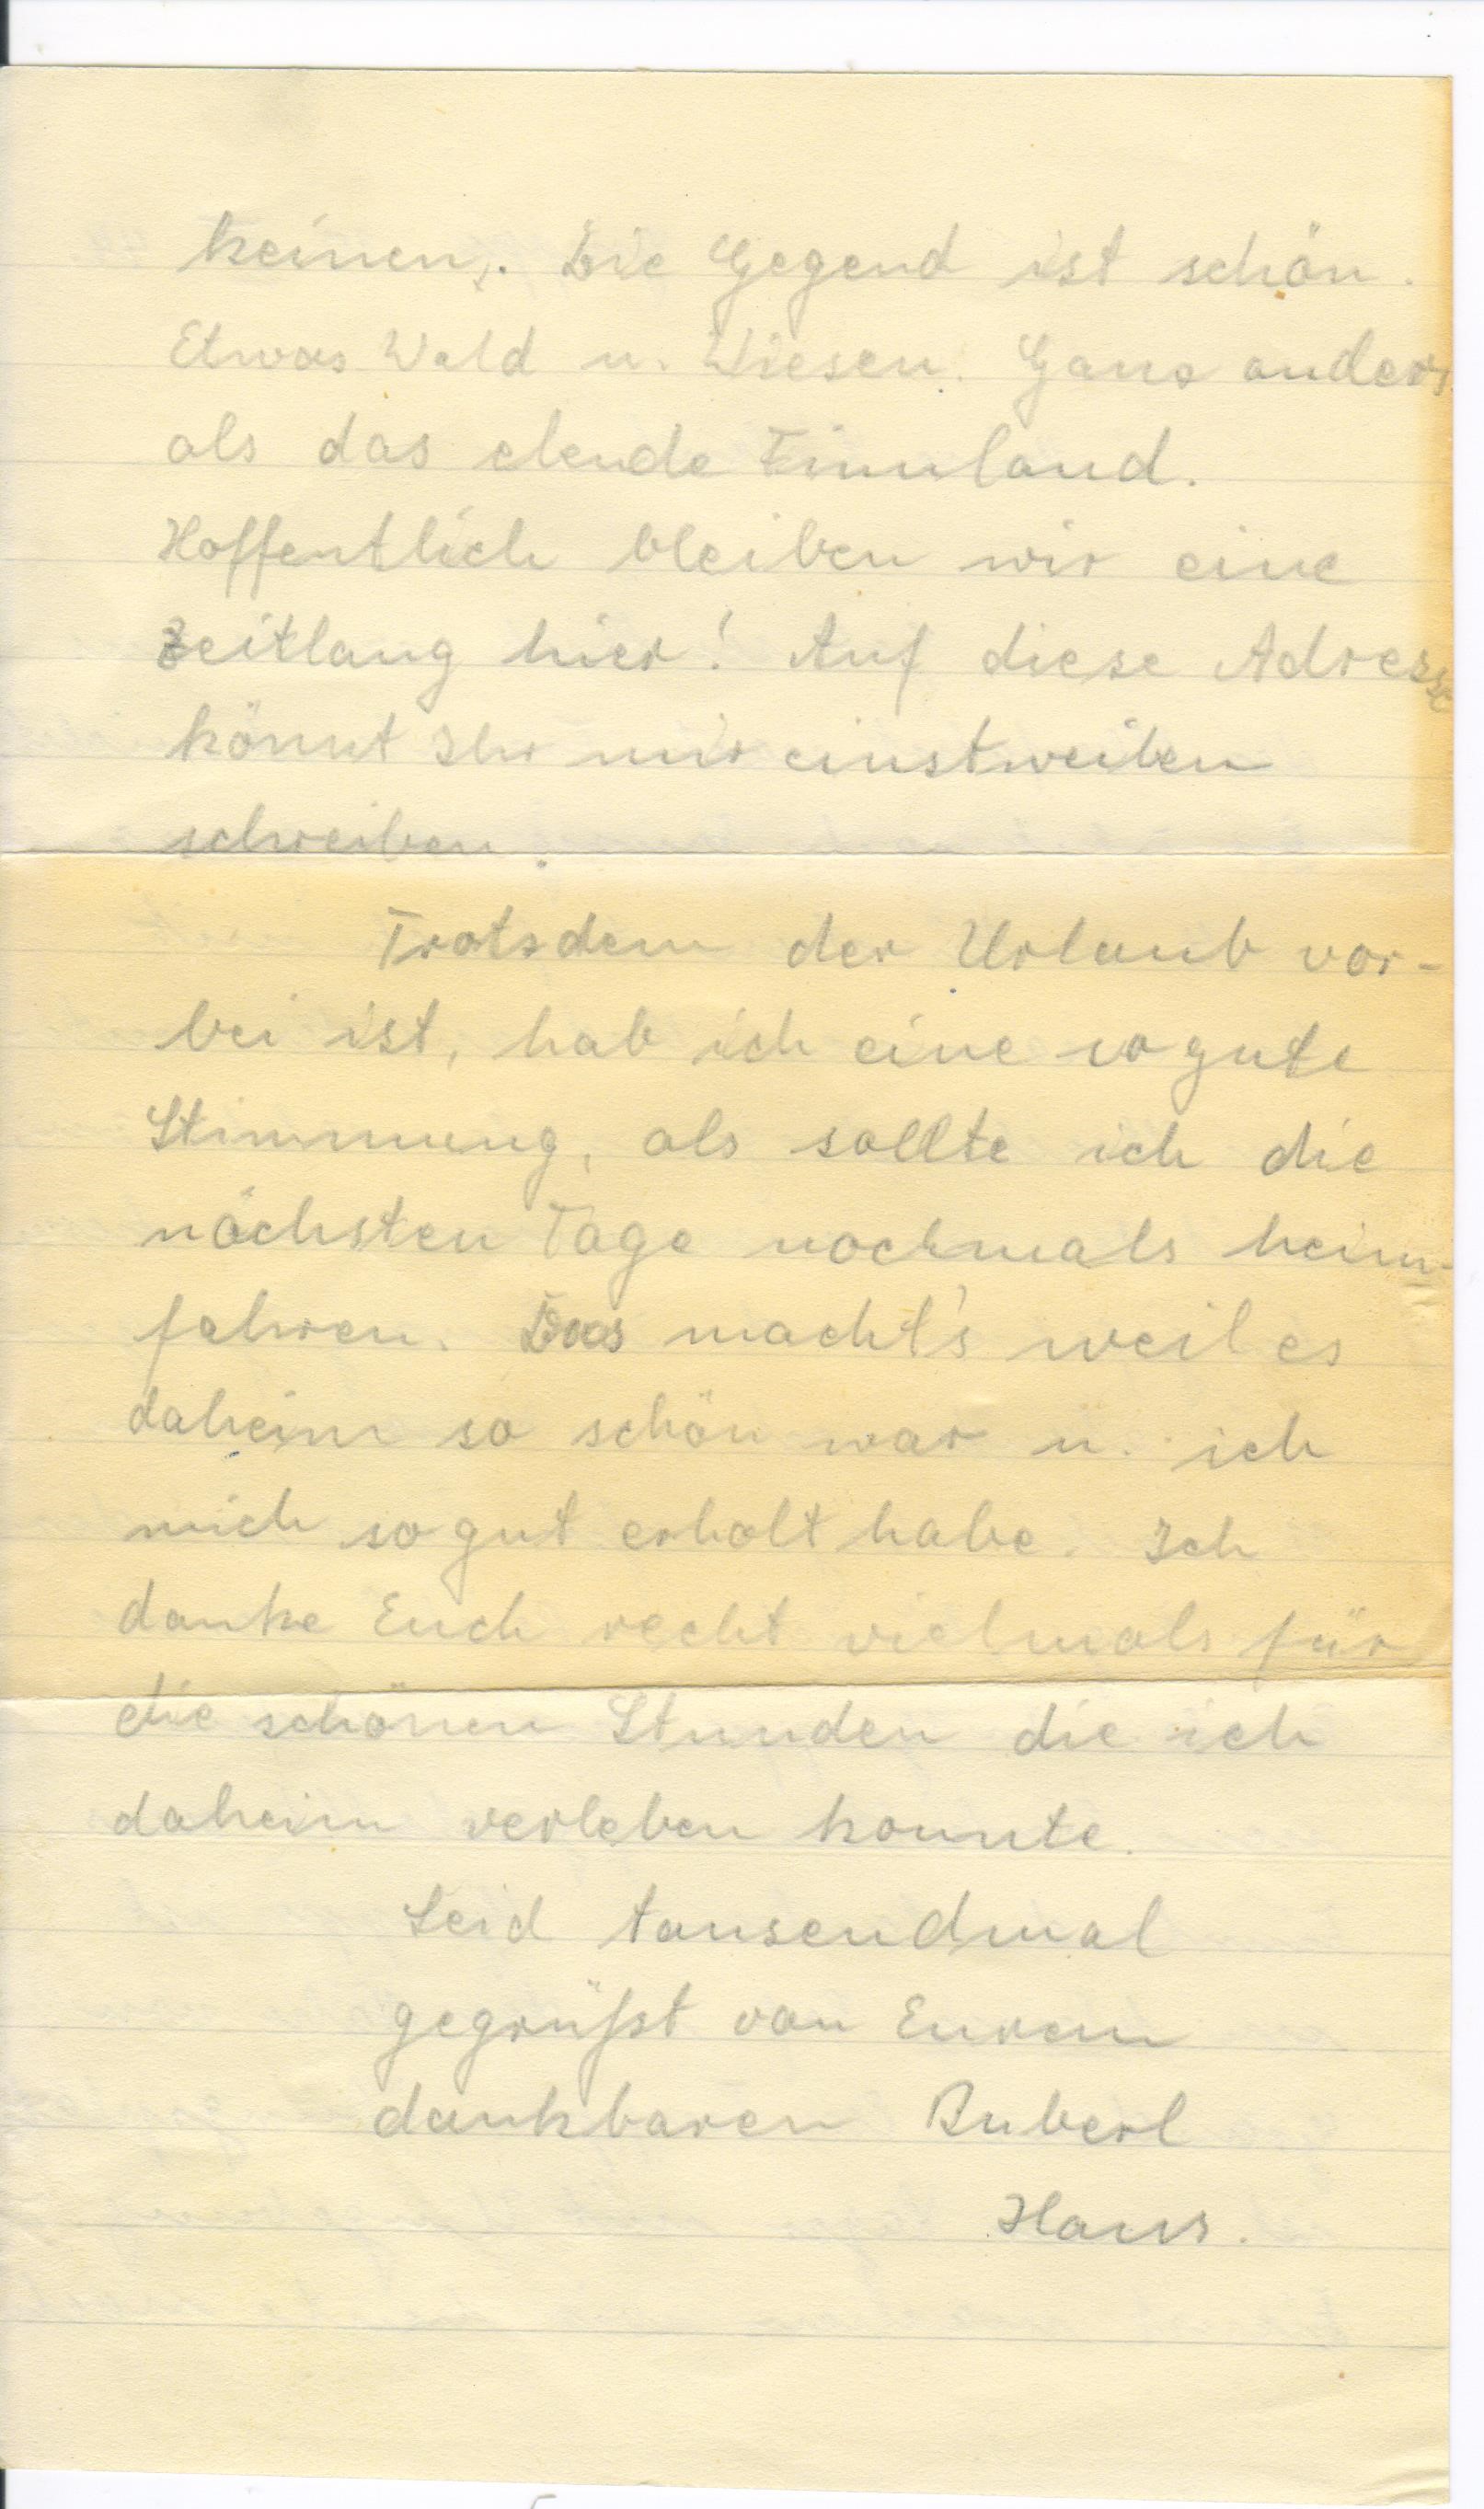 keinen. Die Gegend ist schön.
Etwas Wald u. Wiesen. Ganz anders
als das elende Finnland.
Hoffentlich bleiben wir eine
Zeitlang hier! Auf diese Adresse
könnt Ihr mir einstweilen
schreiben.
Trotzdem der Urlaub vor-
bei ist, hab ich eine so gute
Stimmung, als sollte ich die
nächsten Tage nochmals heim-
fahren. Das macht's weil es
daheim so schön war u. ich
mich so gut erholt habe. Ich
danke Euch recht vielmals für
die schönen Stunden die ich
daheim verleben konnte.
Seid tausendmal
gegrüßt von Eurem
dankbaren Buberl
Hans.